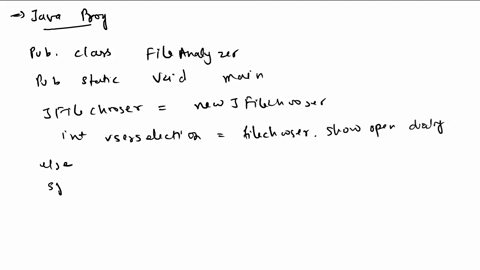 → Java Prog
Pub. class File Analyzer
Pub static void main
JFilechooser = new JFilechooser
int userselection = filechooser. show open dialog
else
sy